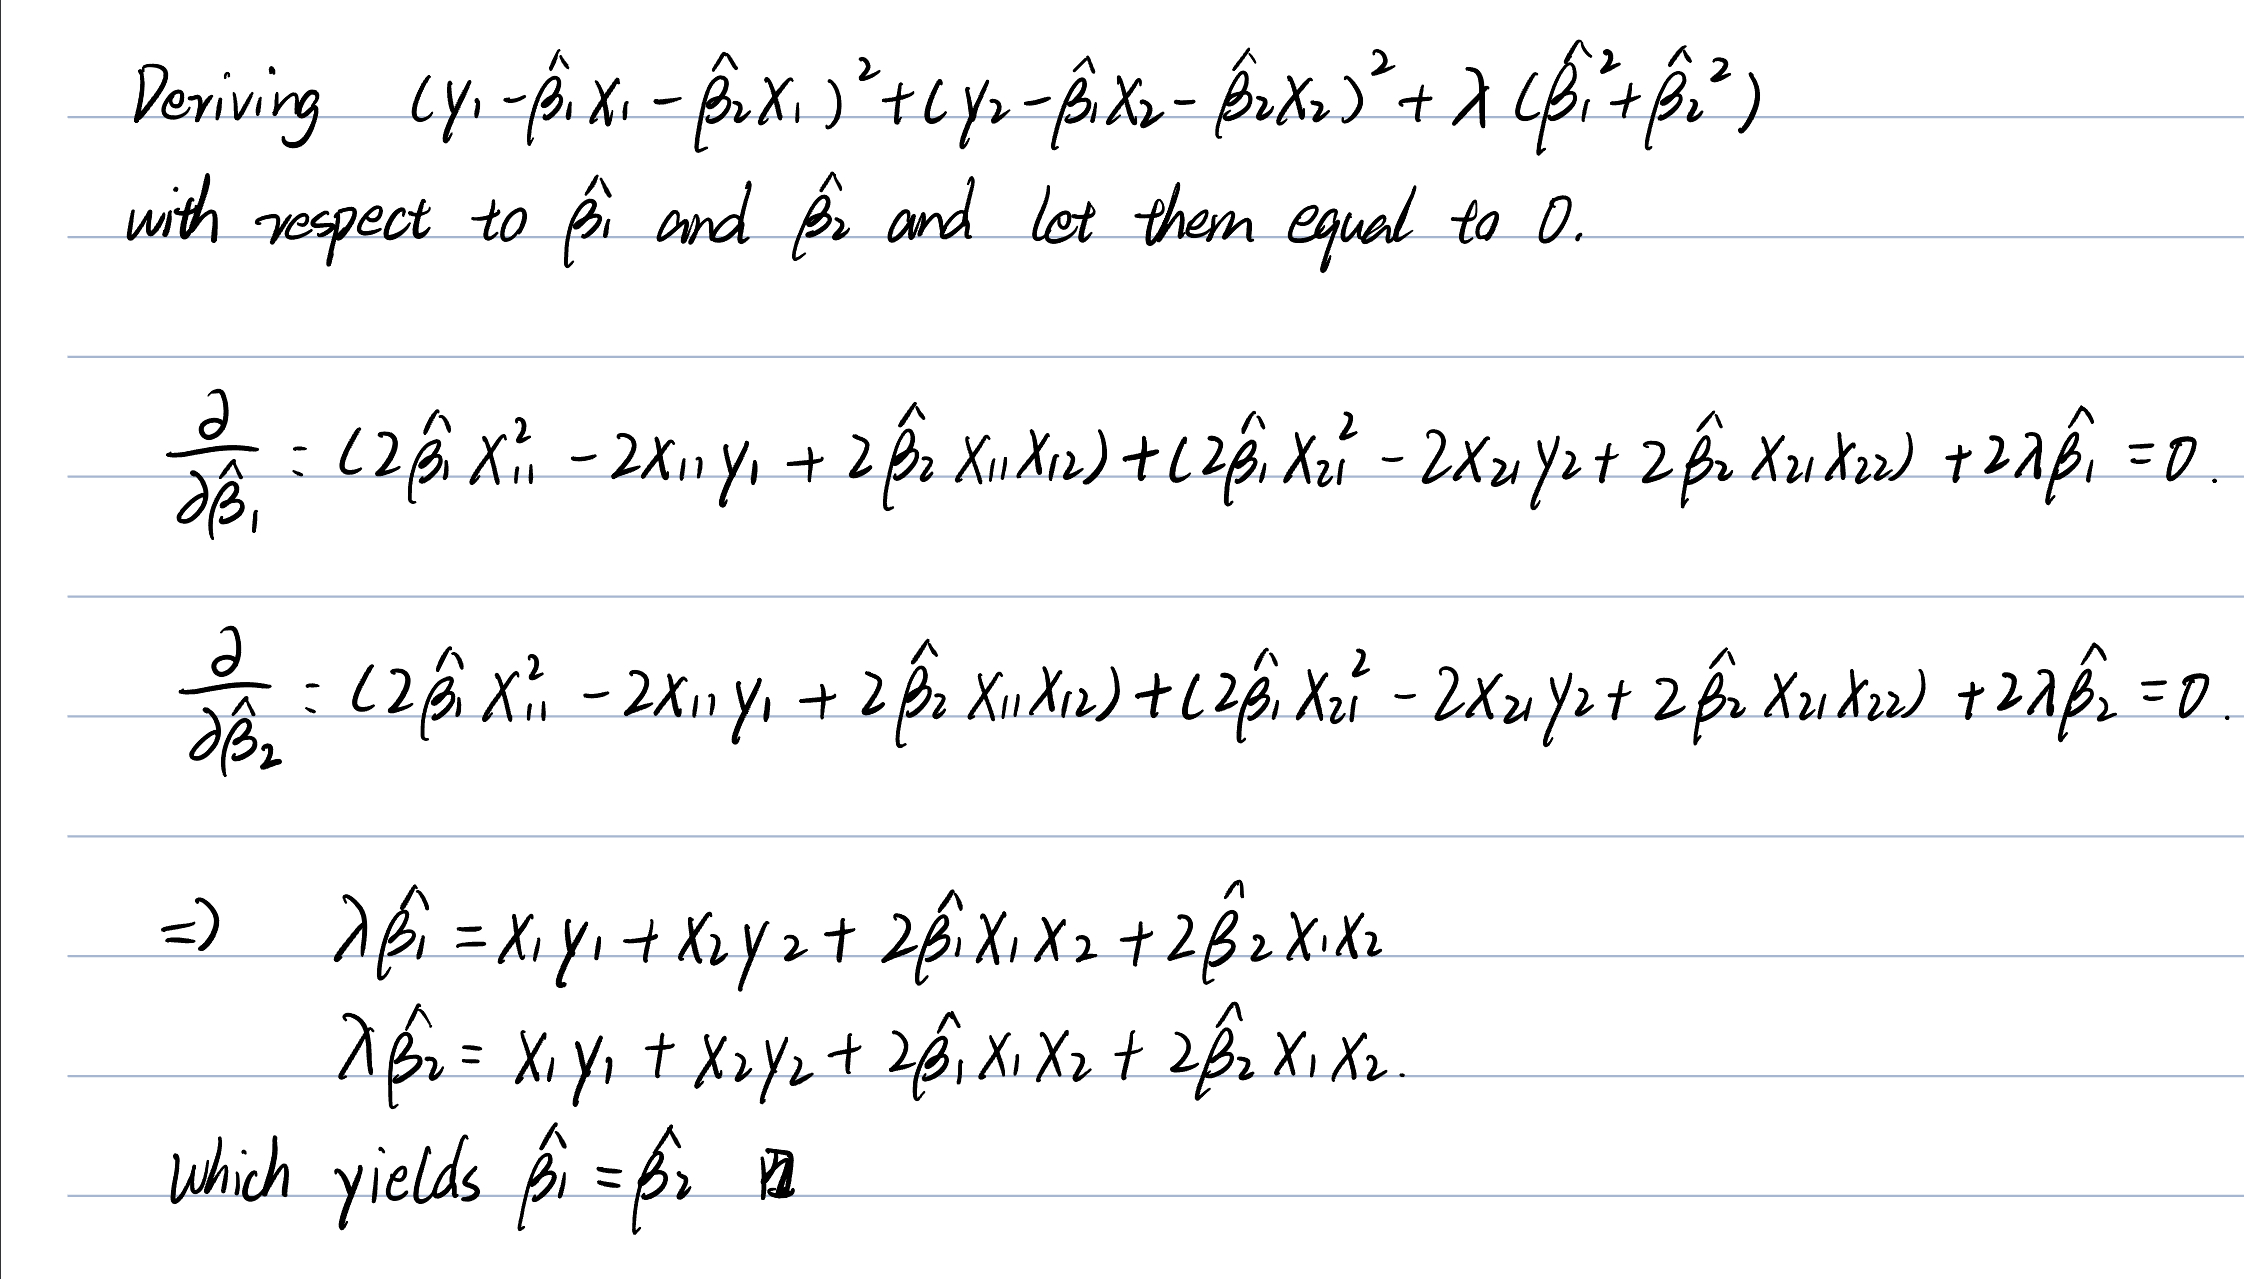 Deriving (y₁ - β̂₁x₁ - β̂₂x₁)² + (y₂ - β̂₁x₂ - β̂₂x₂)² + λ(β̂₁² + β̂₂²)
with respect to β̂₁ and β̂₂ and let them equal to 0.
∂/∂β̂₁ : (2β̂₁x₁₁² - 2x₁₁y₁ + 2β̂₂x₁₁x₁₂) + (2β̂₁x₂₁² - 2x₂₁y₂ + 2β̂₂x₂₁x₂₂) + 2λβ̂₁ = 0.
∂/∂β̂₂ : (2β̂₁x₁₁² - 2x₁₁y₁ + 2β̂₂x₁₁x₁₂) + (2β̂₁x₂₁² - 2x₂₁y₂ + 2β̂₂x₂₁x₂₂) + 2λβ̂₂ = 0.
⇒ λβ̂₁ = x₁y₁ + x₂y₂ + 2β̂₁x₁x₂ + 2β̂₂x₁x₂
λβ̂₂ = x₁y₁ + x₂y₂ + 2β̂₁x₁x₂ + 2β̂₂x₁x₂.
which yields β̂₁ = β̂₂